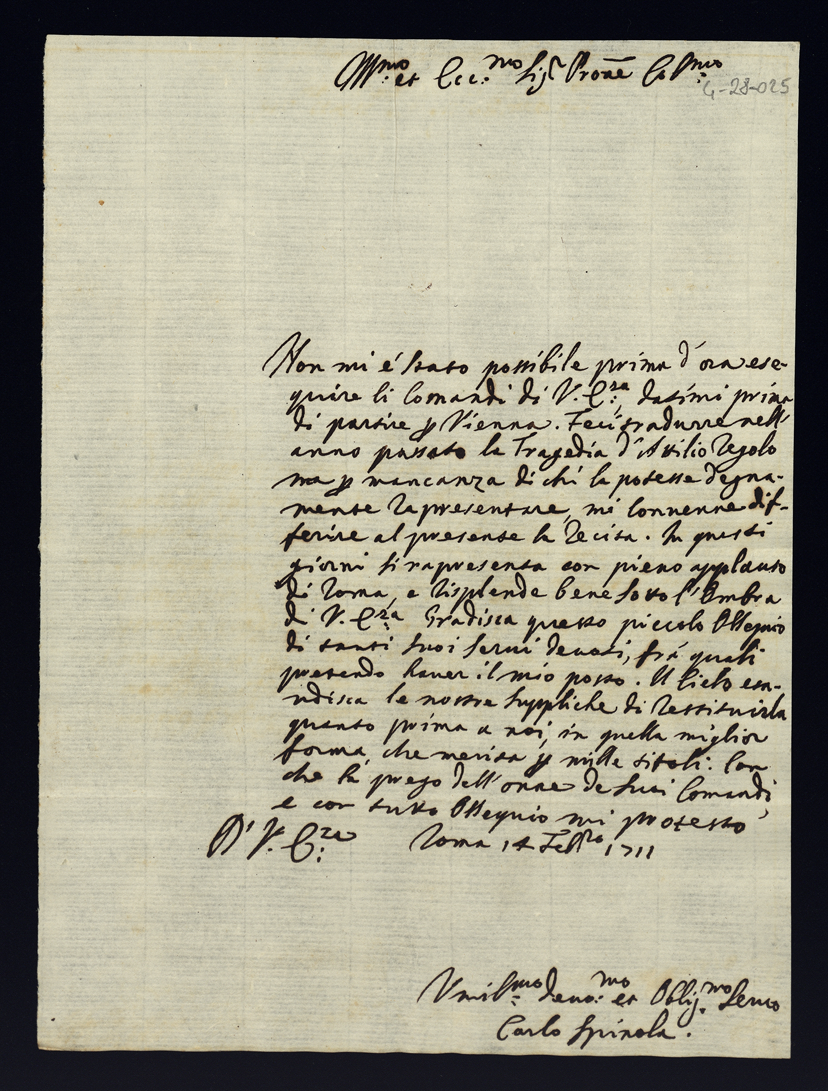 Ill.mo et Ecc.mo Sig.r Prone Col.mo
4-28-025
Non mi é stato possibile prima d'ora ese-
guire li Comandi di V. E.za datimi prima
di partire p Vienna. Feci tradurre nell'
anno passato la Tragedia d'Attilio Regolo
ma p mancanza di chi la potesse degna-
mente rapresentare, mi convenne dif-
ferire al presente la recita. In questi
giorni si rapresenta con pieno applauso
di Roma, e risplende bene sotto l'Ombra
di V. E.za Gradisca questo piccolo Ossequio
di tanti suoi servi devoti, frá quali
pretendo haver il mio posto. Il Cielo esa-
udisca le nostre suppliche di restituirla
quanto prima a noi, in quella miglior
forma, che merita p mille titoli. Con
che la prego dell'onore de suoi Comandi,
e con tutto Ossequio mi protesto
D' V. E.za Roma 14 Feb.ro 1711
Umil.mo devo.mo et Oblig.mo Servo
Carlo Spinola.